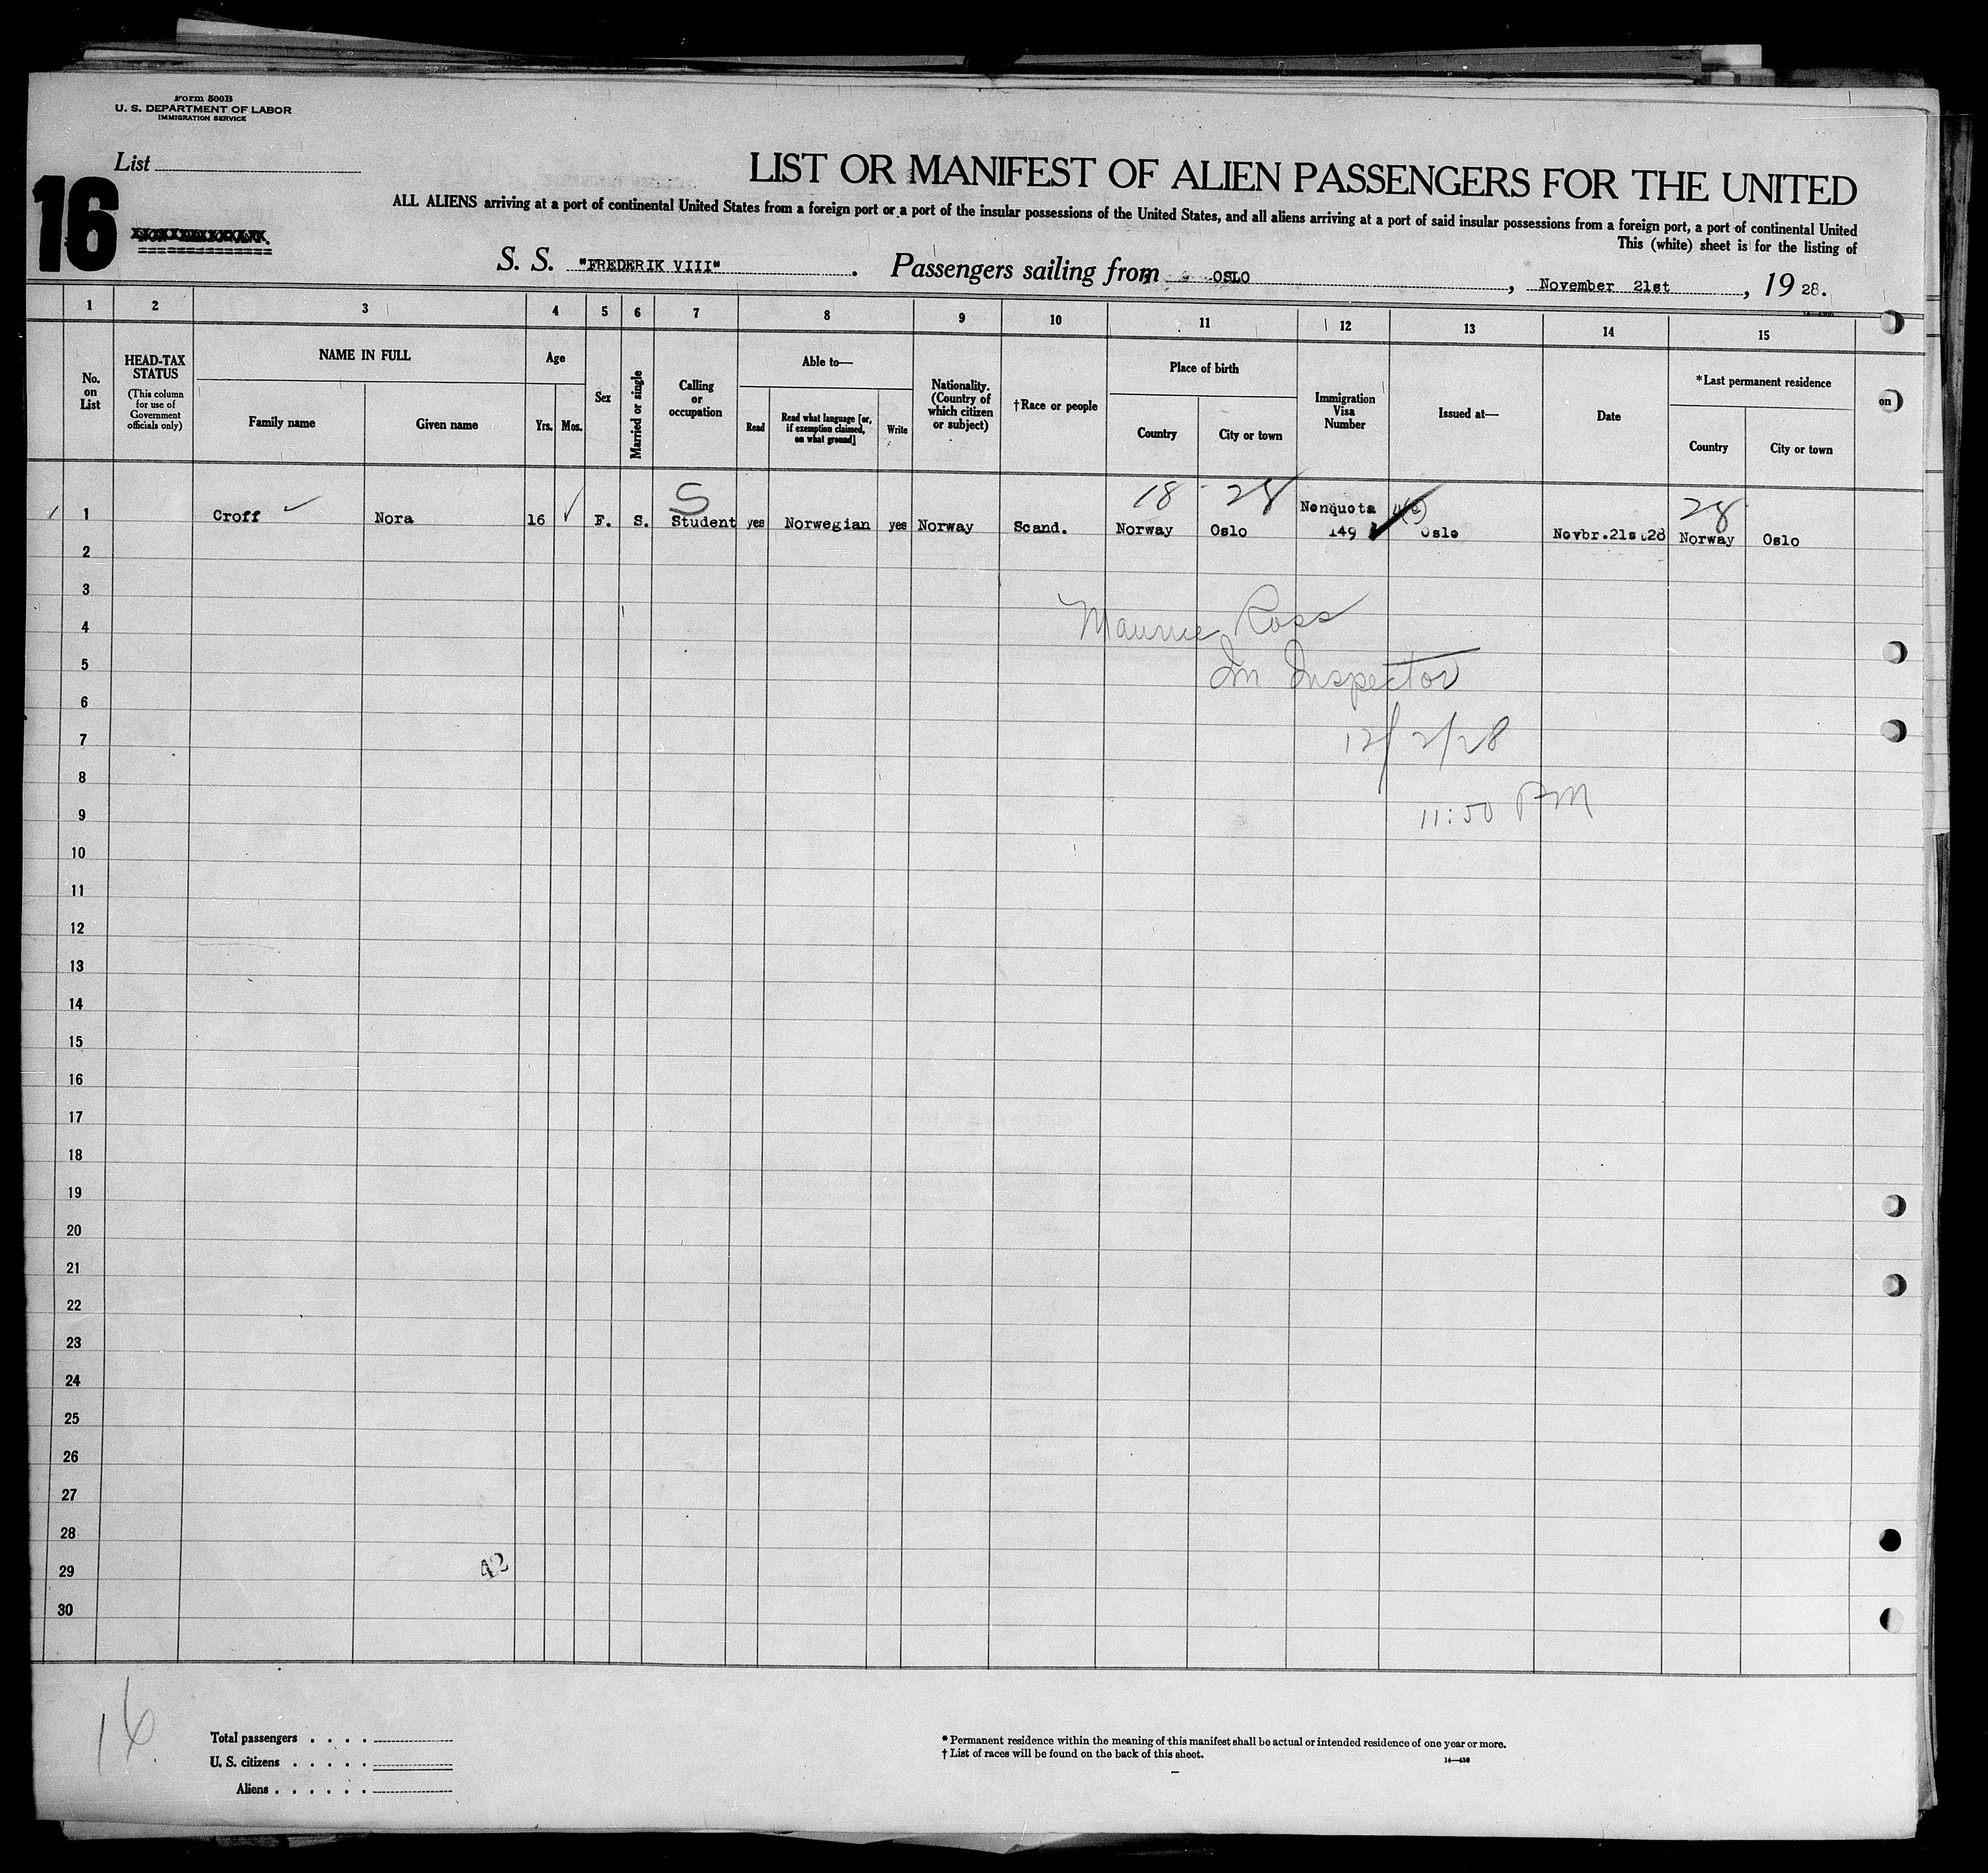 Form 500B
U. S. DEPARTMENT OF LABOR
IMMIGRATION SERVICE
List
16
LIST OR MANIFEST OF ALIEN PASSENGERS FOR THE UNITED
ALL ALIENS arriving at a port of continental United States from a foreign port or a port of the insular possessions of the United States, and all aliens arriving at a port of said insular possessions from a foreign port, a port of continental United
This (white) sheet is for the listing of
S. S. "FREDERIK VIII". Passengers sailing from OSLO, November 21st, 19 28.
1 2 3 4 5 6 7 8 9 10 11 12 13 14 15
No. on List
HEAD-TAX STATUS
(This column for use of Government officials only)
NAME IN FULL
Family name
Given name
Age
Yrs. Mos.
Sex
Married or single
Calling or occupation
Able to—
Read
Read what language [or, if exemption claimed, on what ground]
Write
Nationality. (Country of which citizen or subject)
†Race or people
Place of birth
Country
City or town
Immigration Visa Number
Issued at—
Date
*Last permanent residence
Country
City or town
on
S 18 - 28 Nonquota 28
1 Croff Nora 16 F. S. Student yes Norwegian yes Norway Scand. Norway Oslo 149 Oslo Novbr.21st28 Norway Oslo
2
3
4
Maurice Ross
5
Im Inspector
6
7
12/2/28
8
9
11:50 PM
10
11
12
13
14
15
16
17
18
19
20
21
22
23
24
25
26
27
28
29
42
30
16
Total passengers
U. S. citizens
Aliens
* Permanent residence within the meaning of this manifest shall be actual or intended residence of one year or more.
† List of races will be found on the back of this sheet.
14—436